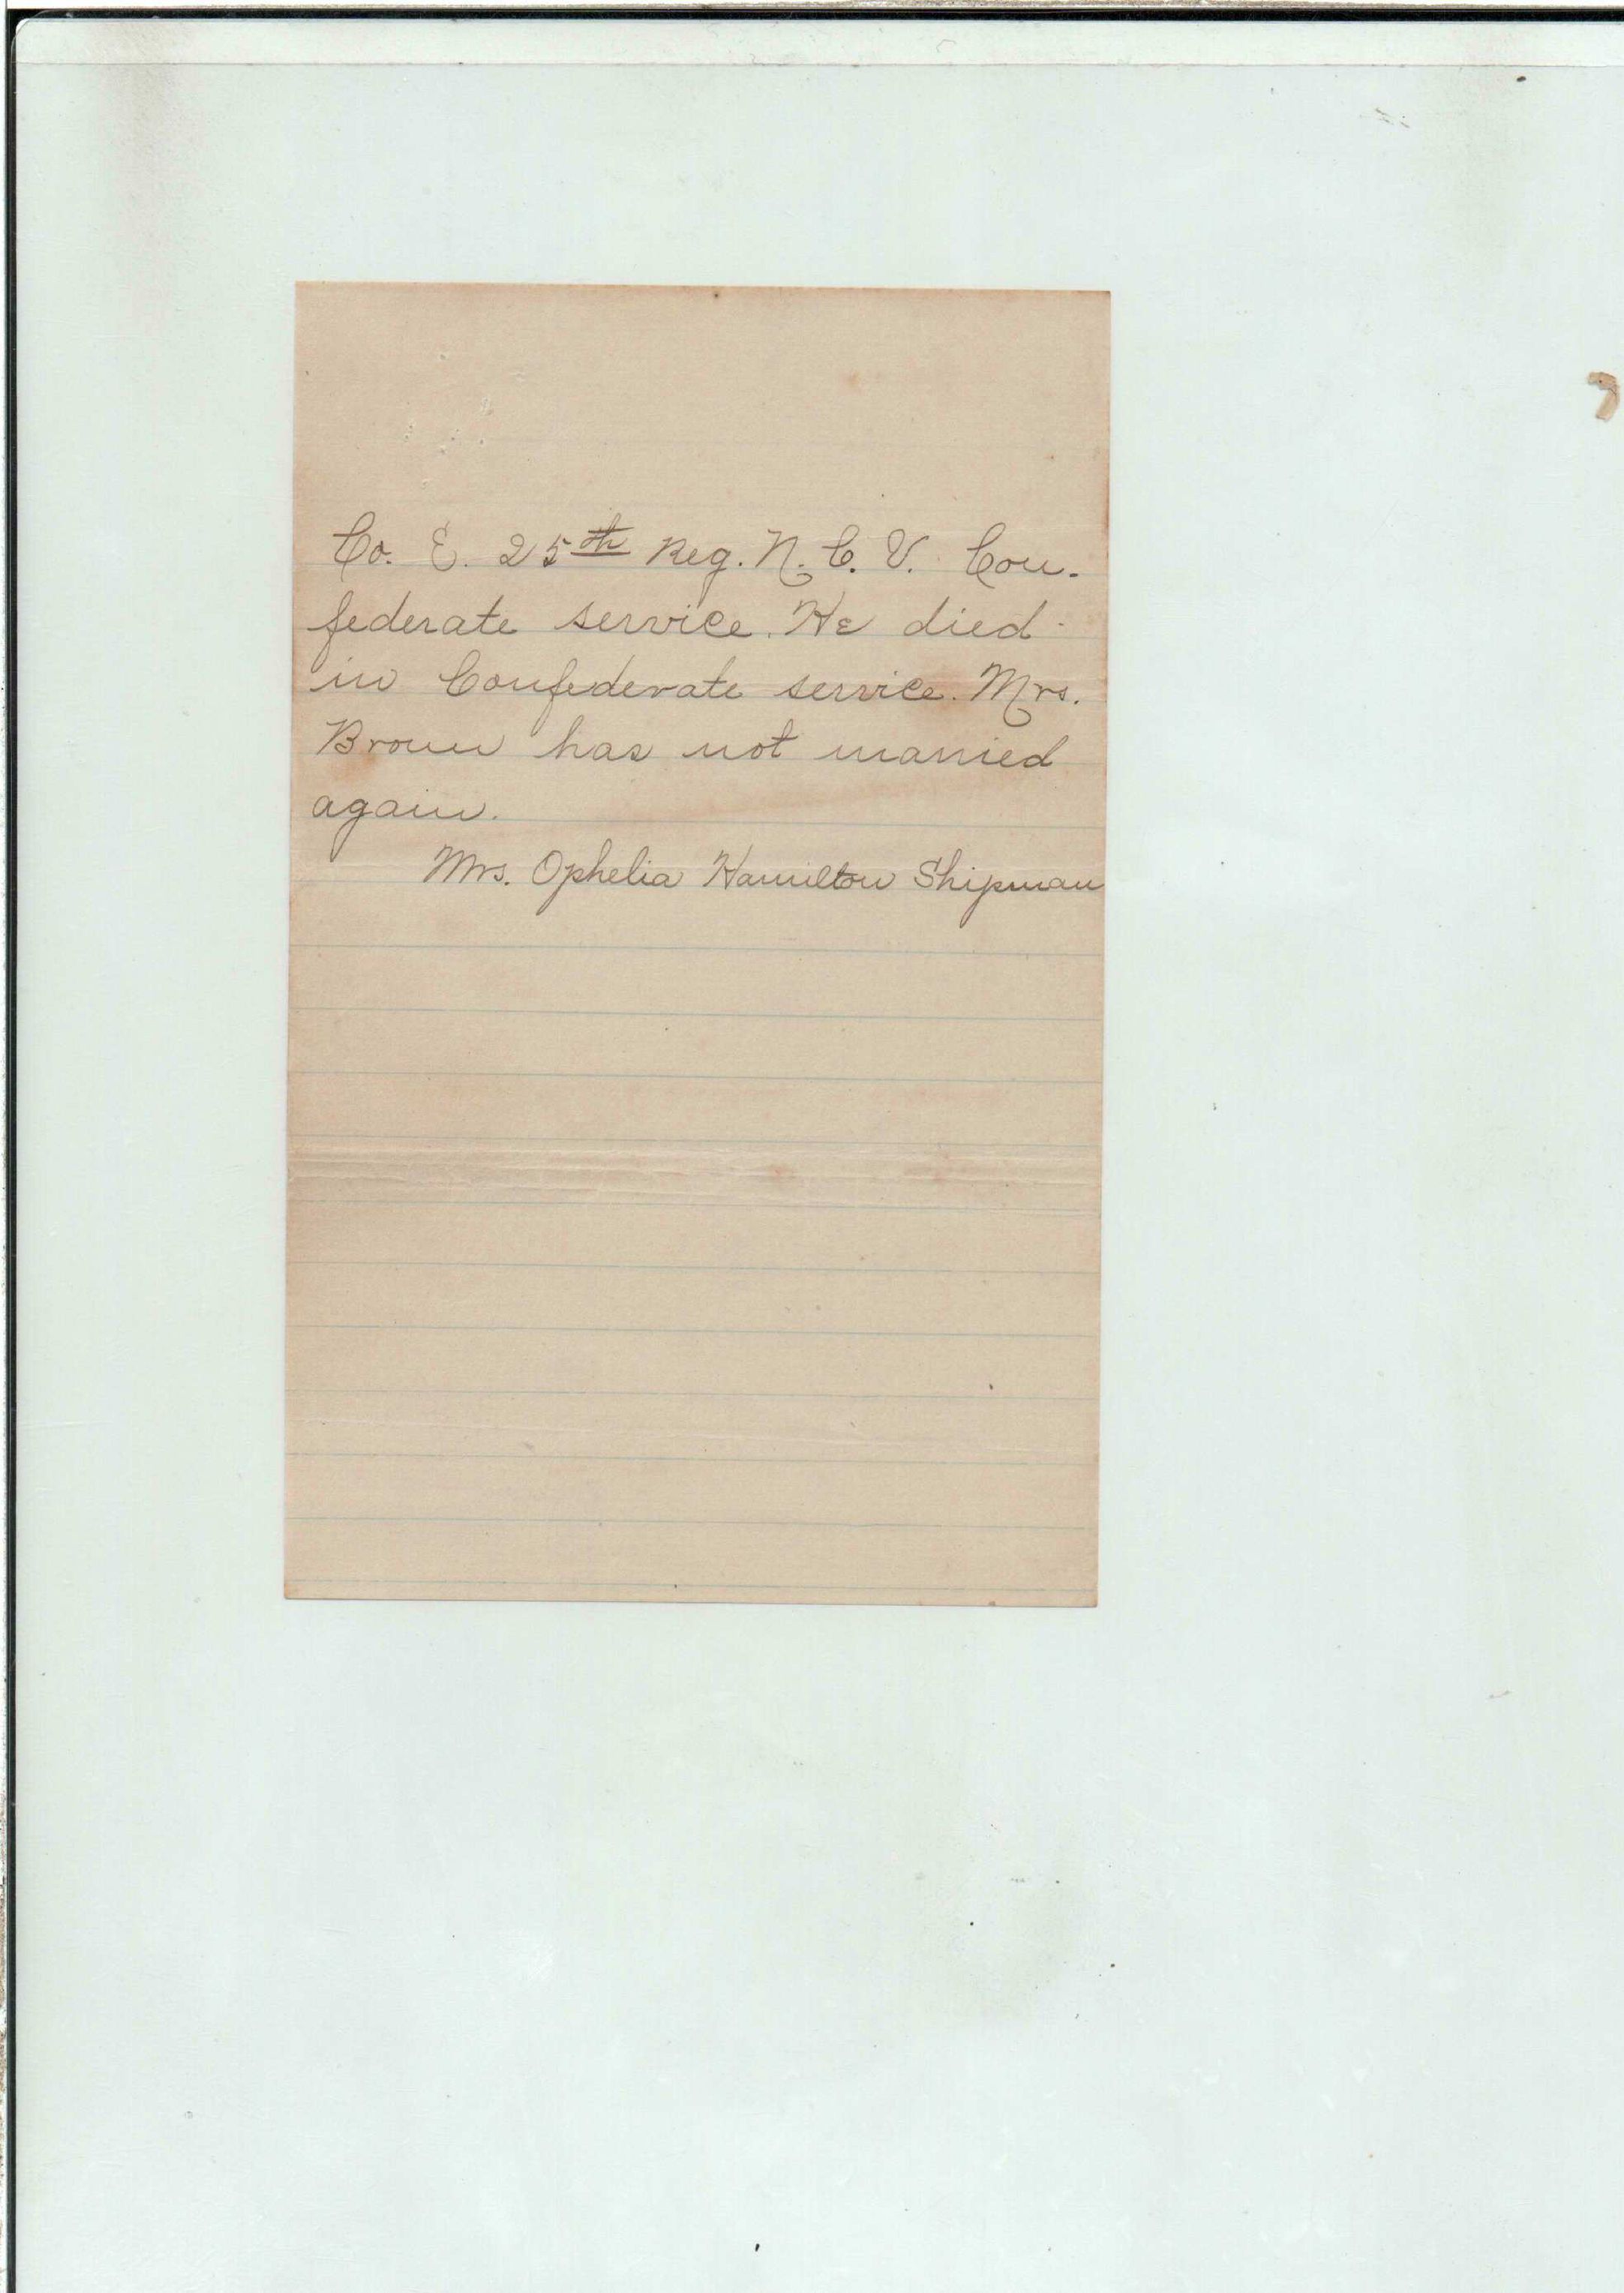 Co. E. 25th Reg. N. C. V. Con-
federate service. He died
in Confederate service. Mrs.
Brown has not married
again.
Mrs. Ophelia Hamilton Shipman